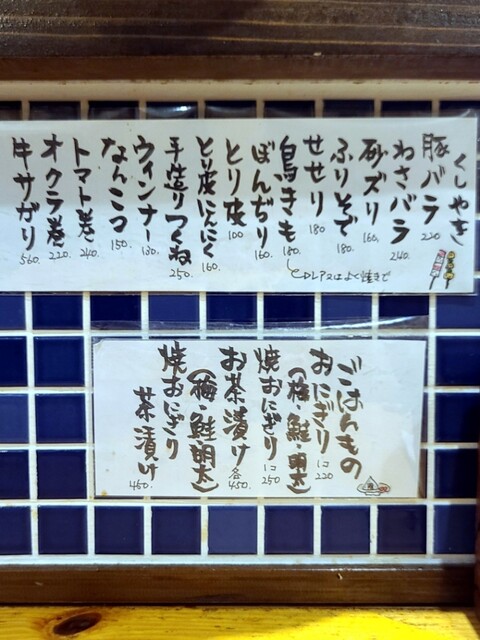 くしやき
豚バラ 220
わさバラ 240.
砂ズリ 160.
ふりそで 180.
せせり 180
鳥きも 180.
レアorよく焼きで
ぼんぢり 160.
とり皮 100
とり皮にんにく 160.
手造りつくね 250.
ウィンナー 130.
なんこつ 150.
トマト巻 240.
オクラ巻 220.
牛サガリ 560.
ごはんもの
おにぎり 1コ 220
(梅・鮭・明太)
焼おにぎり 1コ 250
お茶漬け 各450.
(梅・鮭・明太)
焼おにぎり
茶漬け 450.